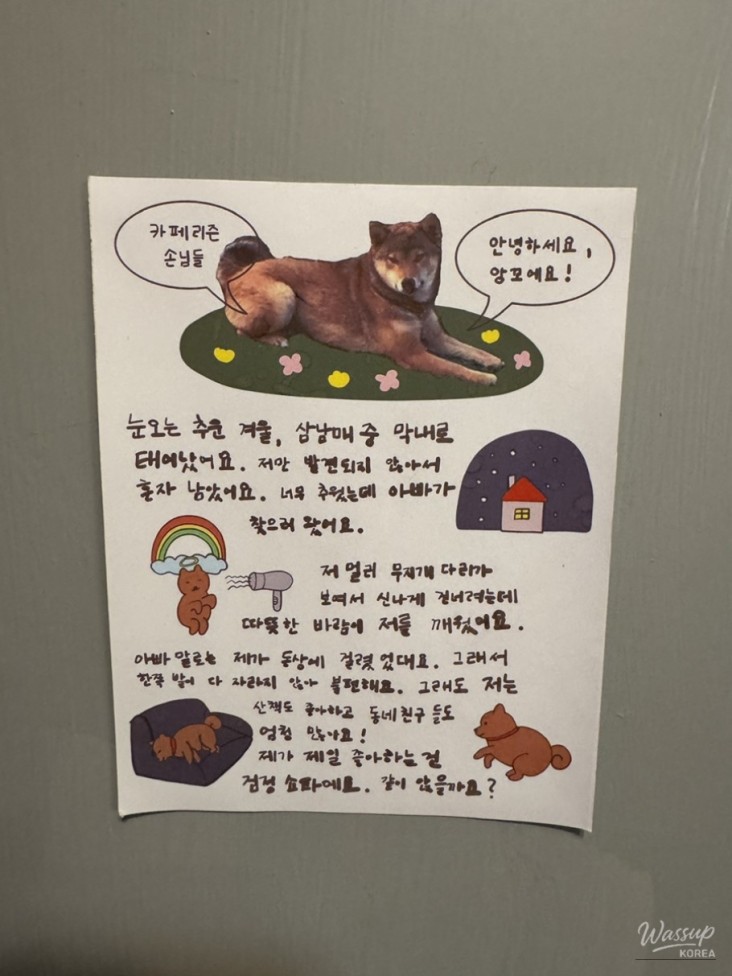 카페리즌
손님들
안녕하세요,
앙꼬에요!
눈오는 추운 겨울, 삼남매 중 막내로
태어났어요. 저만 발견되지 않아서
혼자 남았어요. 너무 추웠는데 아빠가
찾으러 왔어요.
저 멀리 무지개 다리가
보여서 신나게 건너려는데
따뜻한 바람이 저를 깨웠어요.
아빠 말로는 제가 동상에 걸렸었대요. 그래서
한쪽 발이 다 자라지 않아 불편해요. 그래도 저는
산책도 좋아하고 동네친구들도
엄청 많아요!
제가 제일 좋아하는 건
검정 쇼파에요. 같이 앉을까요?
Wassup
KOREA